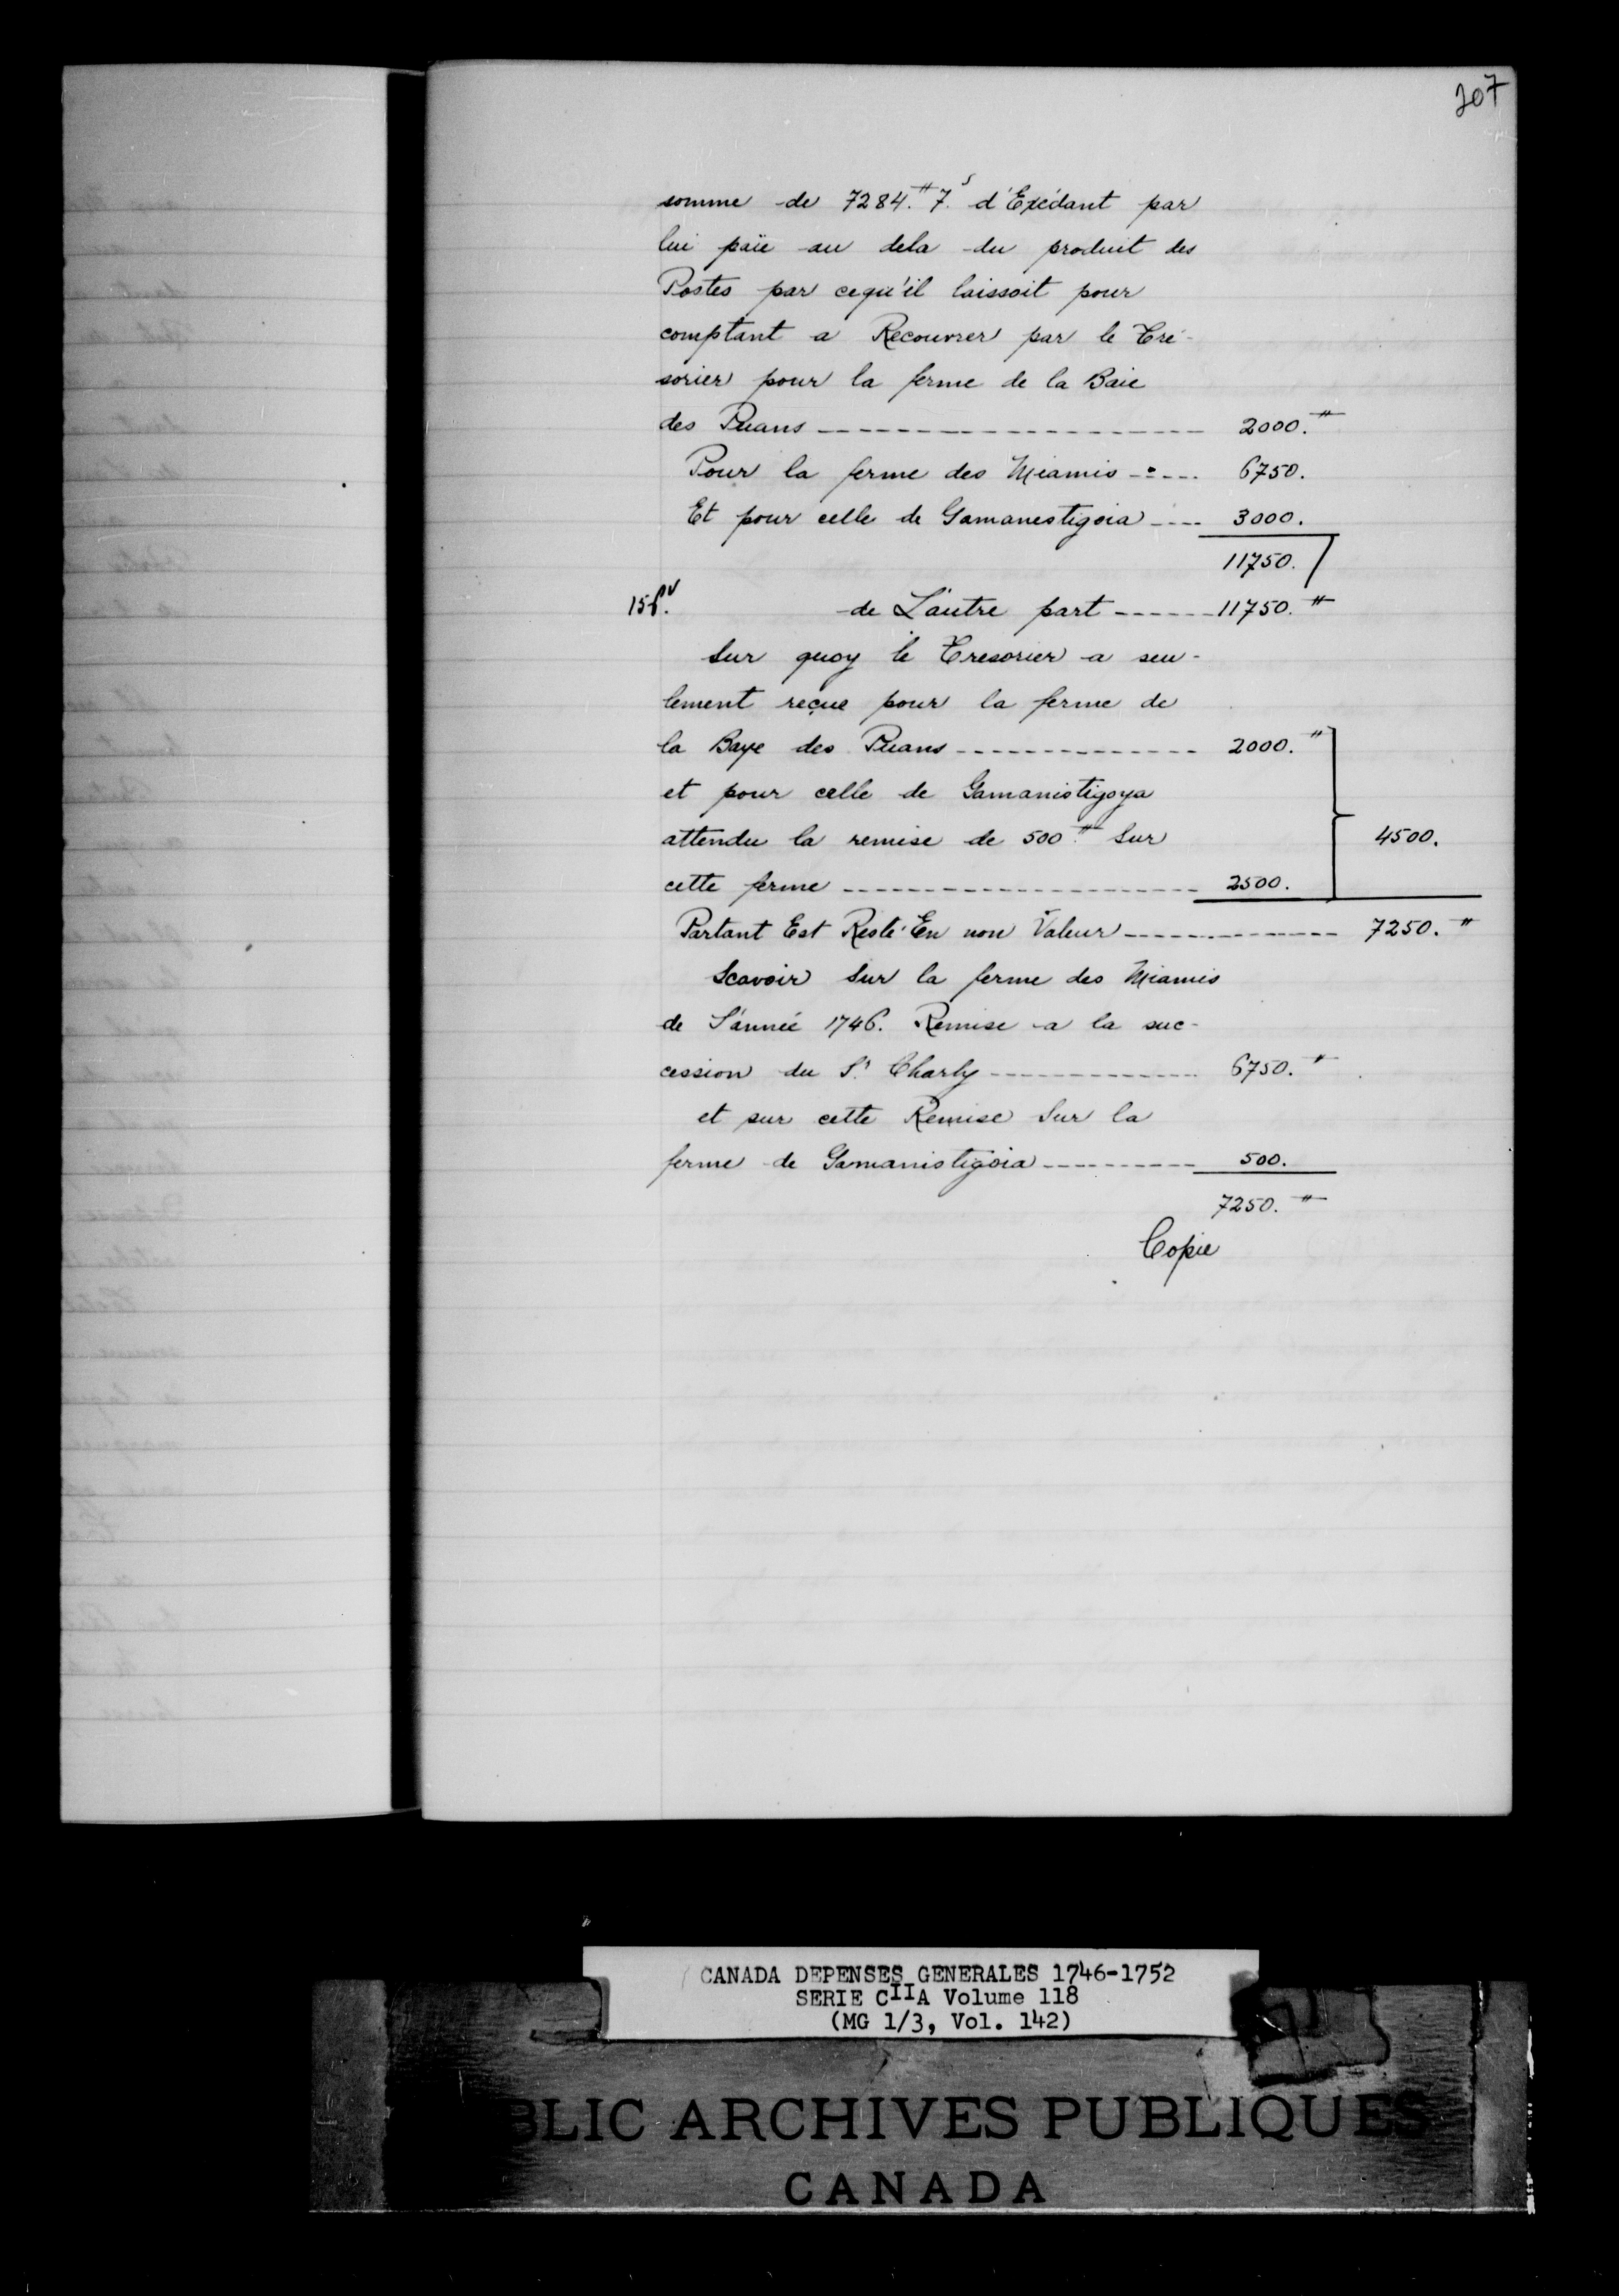 207
somme de 7284.ᵗᵗ 7.ˢ d'Exédant par
lui païe au dela du produit des
Postes par cequ'il laissoit pour
comptant a Recouvrer par le Tré-
sorier pour la ferme de la Baie
des Puans -------- 2000.ᵗᵗ
Pour la ferme des Miamis ---- 6750.
Et pour celle de Gamanestigoia ---- 3000.
11750.
de L'autre part ------ 11750.ᵗᵗ
Sur quoy le Tresorier a seu-
lement reçue pour la ferme de
la Baye des Puans -------- 2000.ᵗᵗ
et pour celle de Gamanistigoya
attendu la remise de 500.ᵗᵗ Sur 4500.
cette ferme -------- 2500.
Partant Est Resté En non Valeur -------- 7250.ᵗᵗ
Scavoir Sur la ferme des Miamis
de L'année 1746. Remise a la suc-
cession du S.ʳ Charly -------- 6750.ᵗᵗ
et sur cette Remise Sur la
ferme de Gamanistigoia -------- 500.
7250.ᵗᵗ
Copie
CANADA DEPENSES GENERALES 1746-1752
SERIE CIIA Volume 118
(MG 1/3, Vol. 142)
BLIC ARCHIVES PUBLIQUES
CANADA